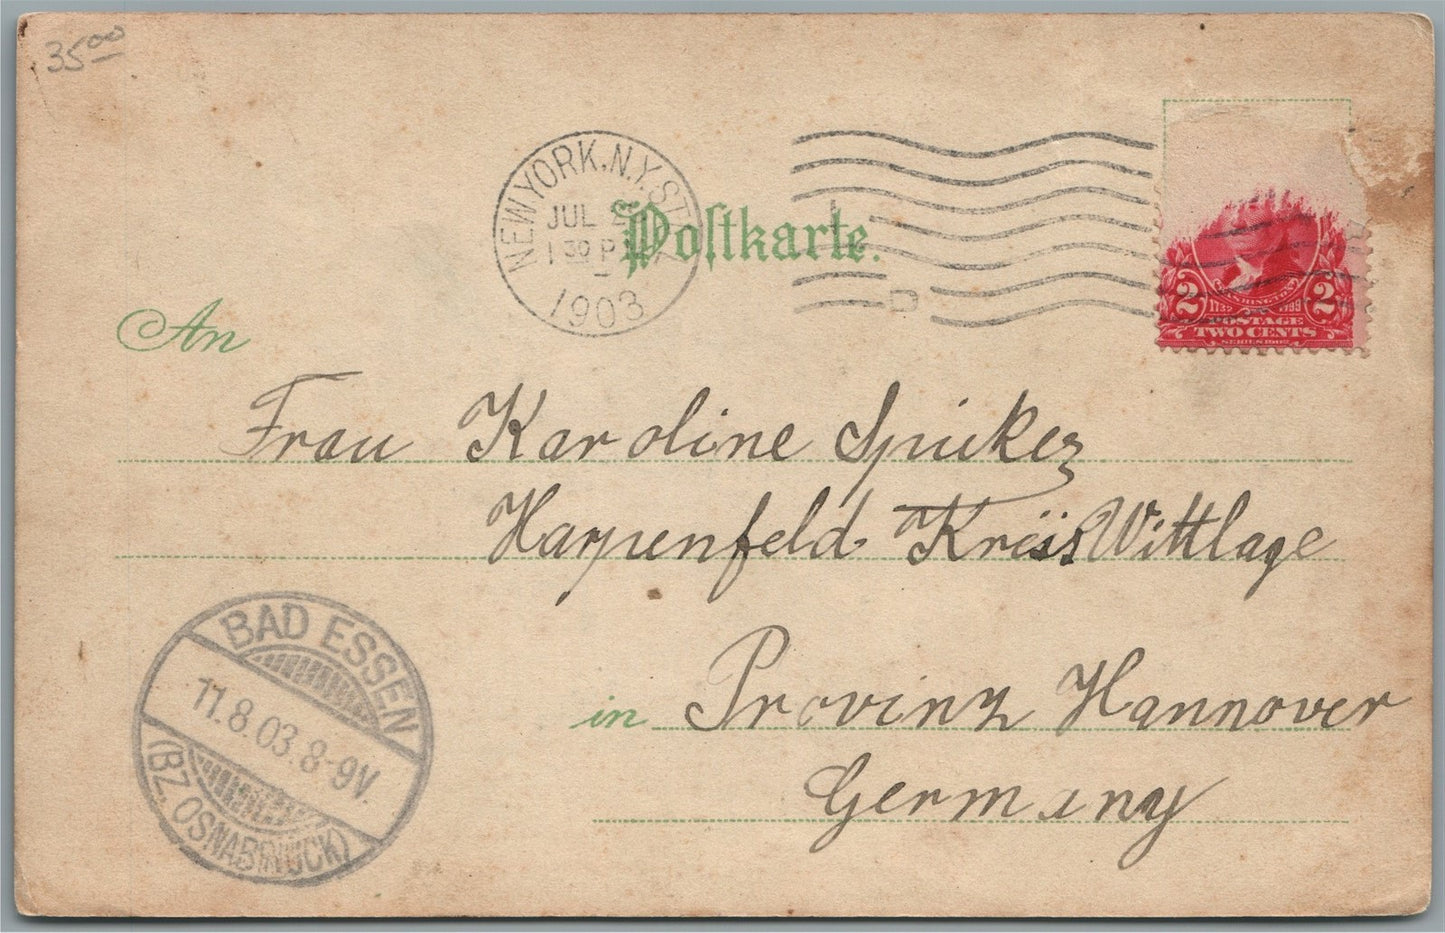 35 00
NEW YORK, N.Y. STA
JUL
1 30 P
1903
Postkarte.
D
WASHINGTON
2 2
POSTAGE
TWO CENTS
SERIES 1902
An
Frau Karoline Spieker
Harpenfeld Kreis Wittlage
in Provinz Hannover
Germany
BAD ESSEN
11.8.03.8-9V.
(BZ. OSNABRÜCK)